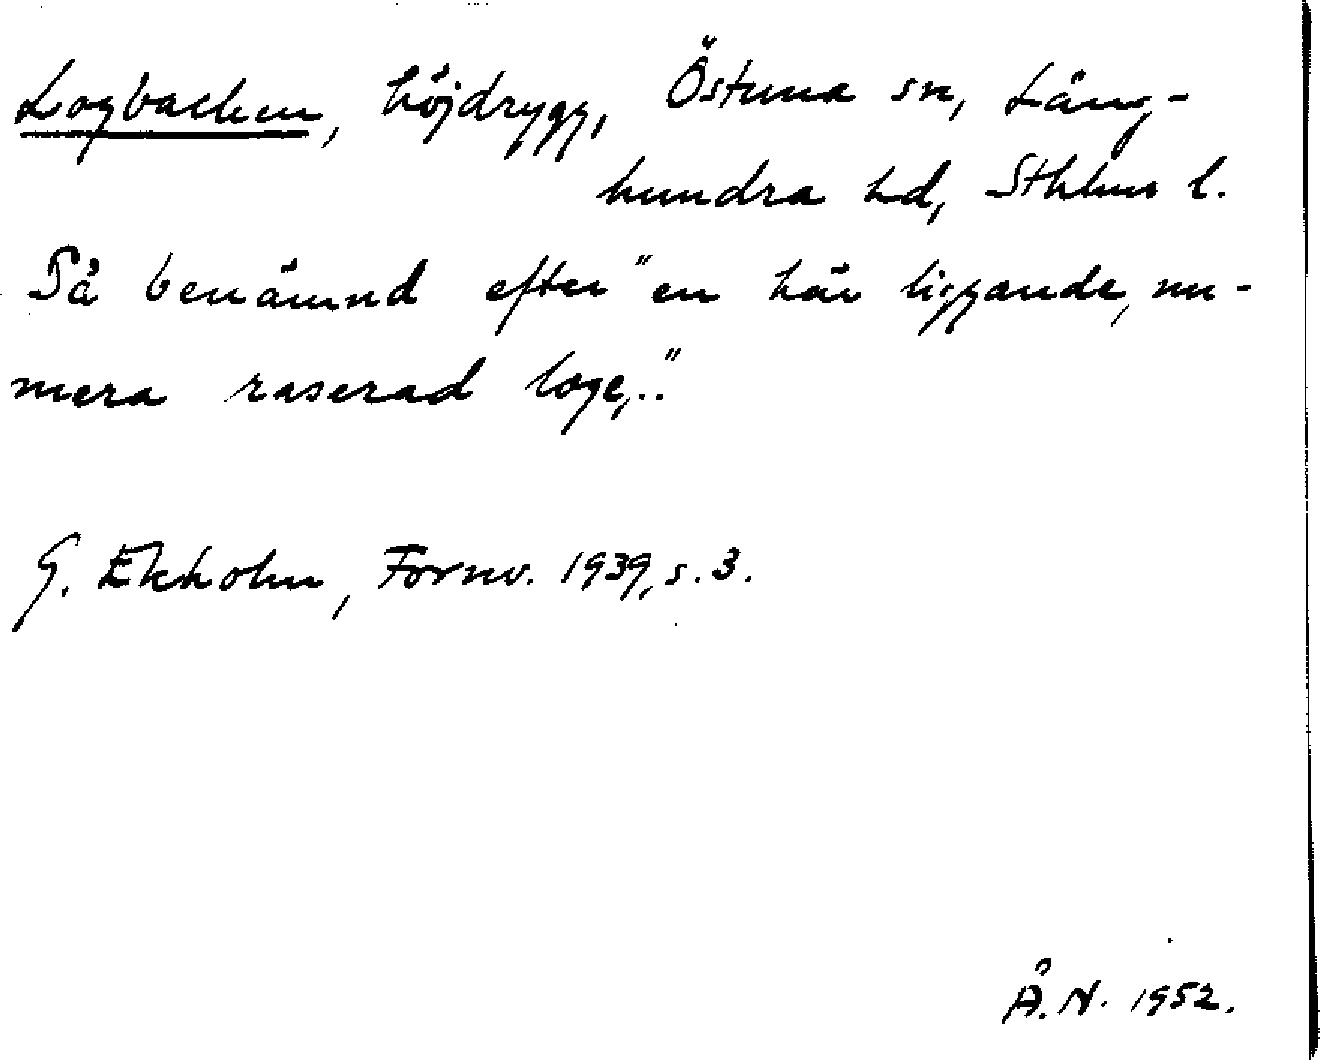 Logbacken, höjdrygg, Östuna sn, Lång-
hundra hd, Sthlms l.
Så benämnd efter "en här liggande, nu-
mera raserad loge,.."
G. Ekholm, Fornv. 1939, s. 3.
Å.N. 1952.